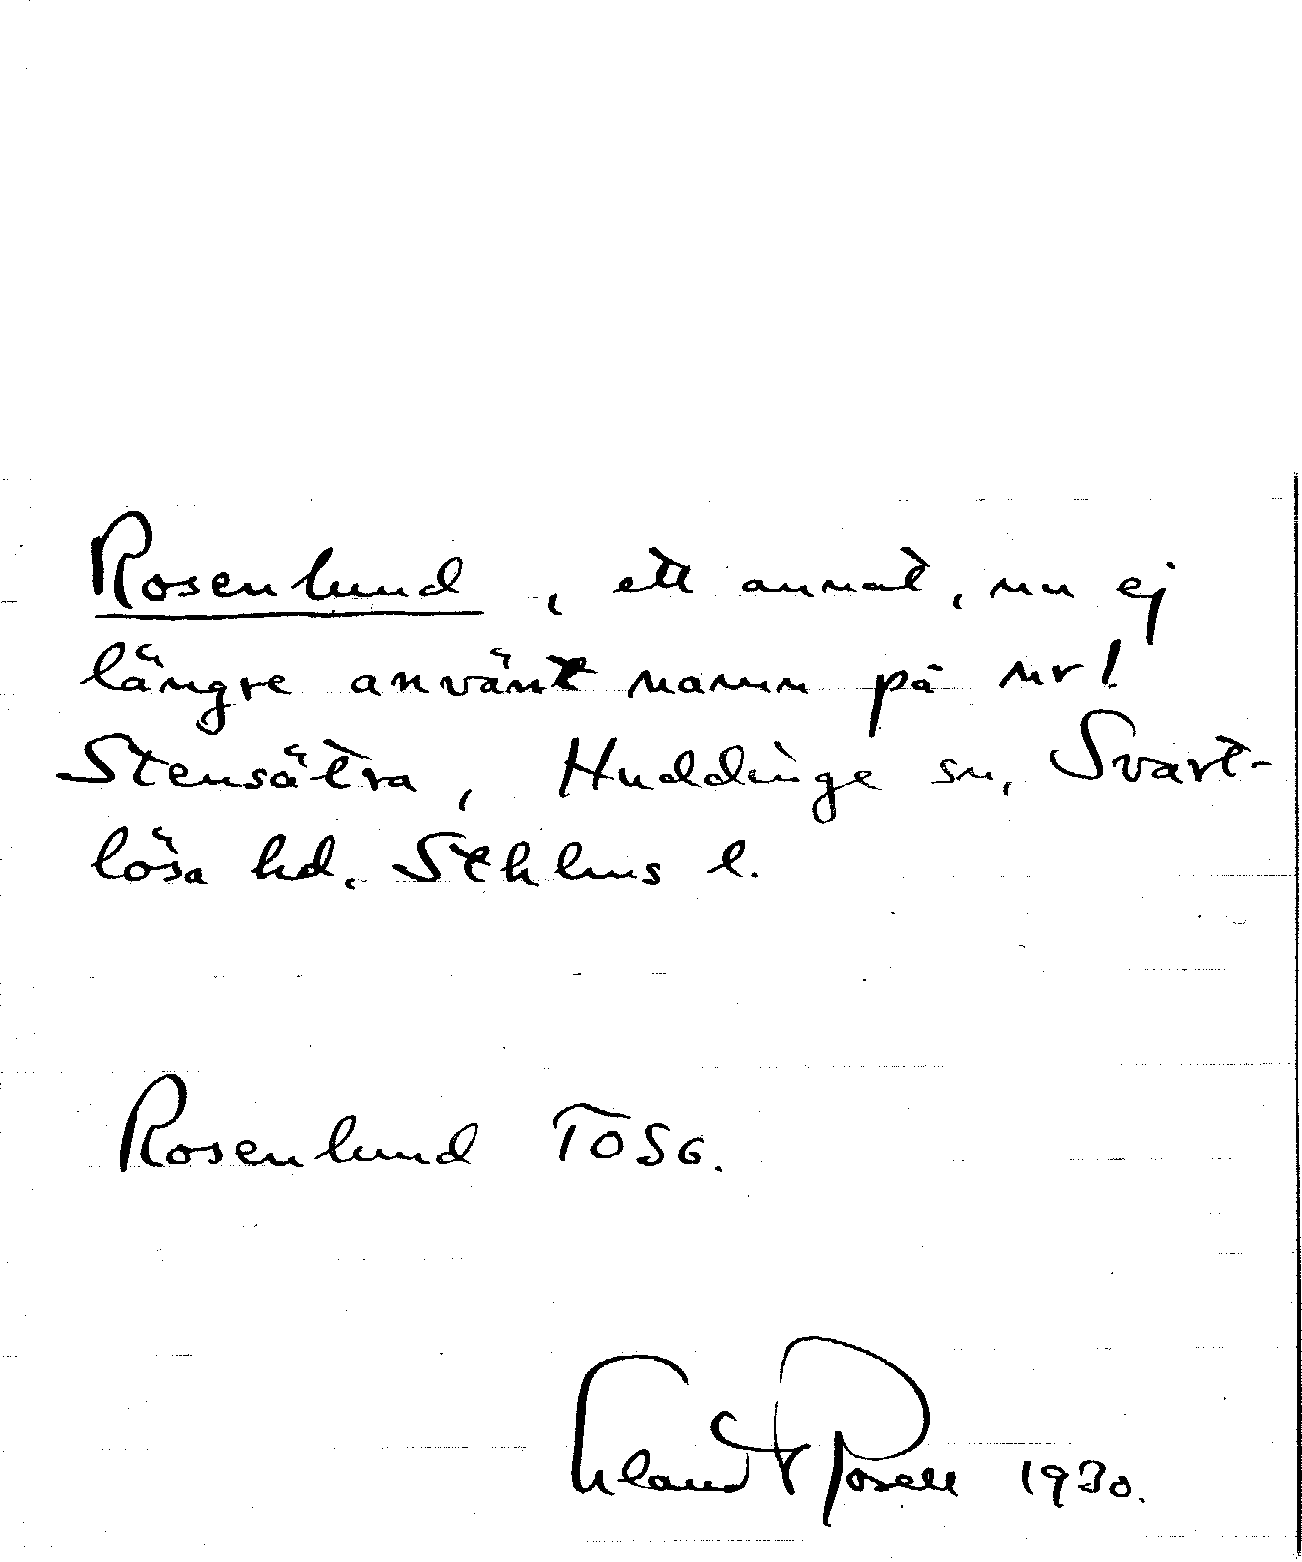 Rosenlund, ett annat, nu ej
längre använt namn på nr 1
Stensätra, Huddinge sn, Svart-
lösa hd. Sthlms l.
Rosenlund TOSG.
1930.